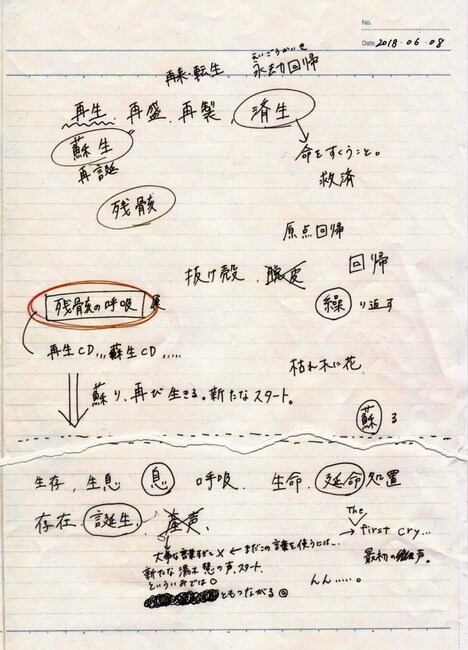 No.
Date 2018・06・08
再来・転生 永劫回帰
えいごうかいき
再生 再盛 再製 済生
蘇生
再誕
命をすくうこと。
救済
残骸
原点回帰
抜け殻 脱皮 回帰
残骸の呼吸 展 繰り返す
再生CD... 蘇生CD.....
枯れ木に花
蘇り、再び生きる。新たなスタート。
蘇る
生存、生息 息 呼吸、生命、延命処置
存在、誕生、産声、
The
→ first cry...
最初の 声。
大事な言葉すぎて× ← まだこの言葉を使うには...
新たな 湯木 慧の声、スタート
といういみでは○
ともつながる◎
んん.....。